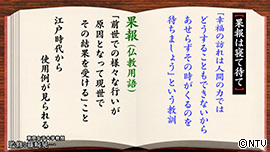 【果報は寝て待て】
「幸福の訪れは人間の力では
どうすることもできないから
あせらずその時がくるのを
待ちましょう」という教訓
果報(仏教用語)
「前世での様々な行いが
原因となって現世で
その結果を受ける」こと
江戸時代から
使用例が見られる
©NTV